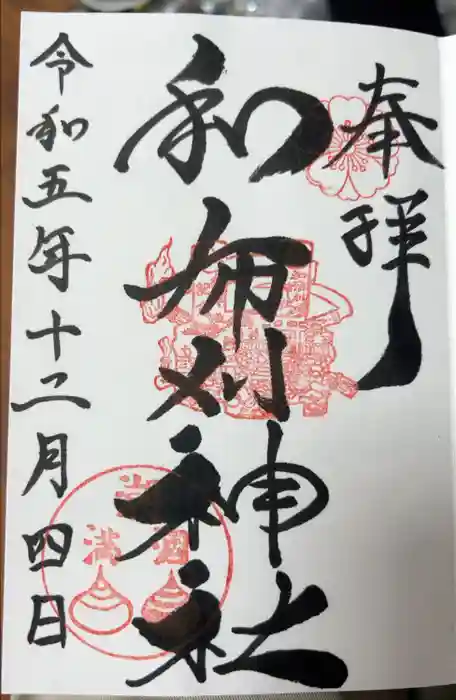 奉拝
和布刈神社
令和五年十二月四日
満